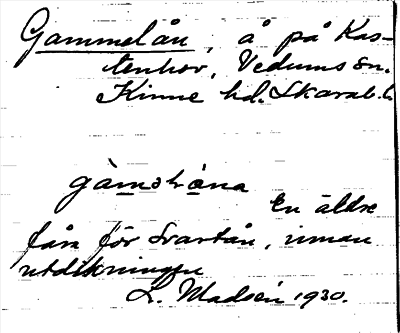 Gammelån, å på Kas-
tenhov, Vedums sn.
Kinne hd. Skarab. l.
En äldre
fåra för Svartån, innan
utdikningen
L. Madsén 1930.